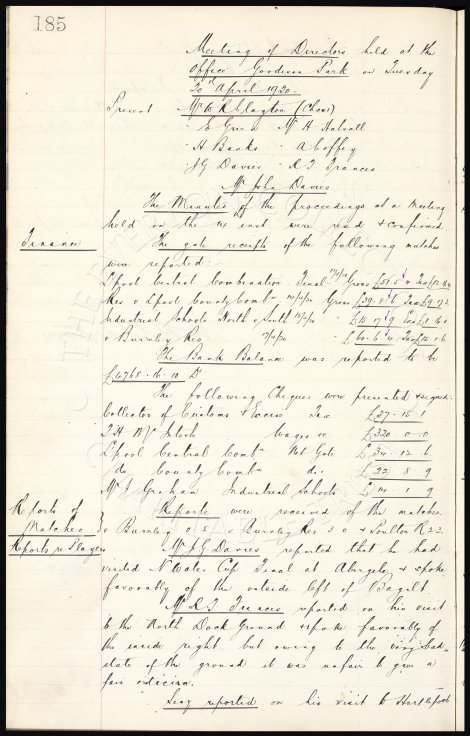 185
Meeting of Directors held at the
Office Goodison Park on Tuesday
20th April 1920.
Present Mr W R Clayton (Chair)
E Green Mr H Halsall
H Banks A Coffey
J G Davies R T Francis
Mr John Davies
The Minutes of the proceedings at a Meeting
held on the inst were read & confirmed
Finance The gate receipts of the following matches
were reported:-
L'pool Central Combination Final Gross
Res v L'pool County Comb Gross £39. 8. 6 Tax £9. 17. 3
Industrial Schools North v South
v Burnley Res
The Bank Balance was reported to be
£4768. 16. 10 Dr
The following Cheques were presented & signed:
Collector of Customs & Excise Tax £37. 15. 1
T. H. McIntosh Wages &c £320. 0. 0
L'pool Central Combn Net Gate £34. 12. 6
do County Combn do. £22. 8. 9
Mr J Graham Industrial Schools £14. 1. 9
Reports of Matches Reports were received of the matches
v Burnley 0 5 v Burnley Res 3 0 & Poulton R 2. 3.
Reports re Players Mr J G Davies reported that he had
visited N Wales Cup Final at Abergele & spoke
favorably of the outside left of Bagilt.
Mr R. T. Francis reported on his visit
to the North Dock Ground & spoke favorably of
the inside right but owing to the very bad
state of the ground it was unfair to give a
fair criticism.
Secy reported on his visit to Hartlepool